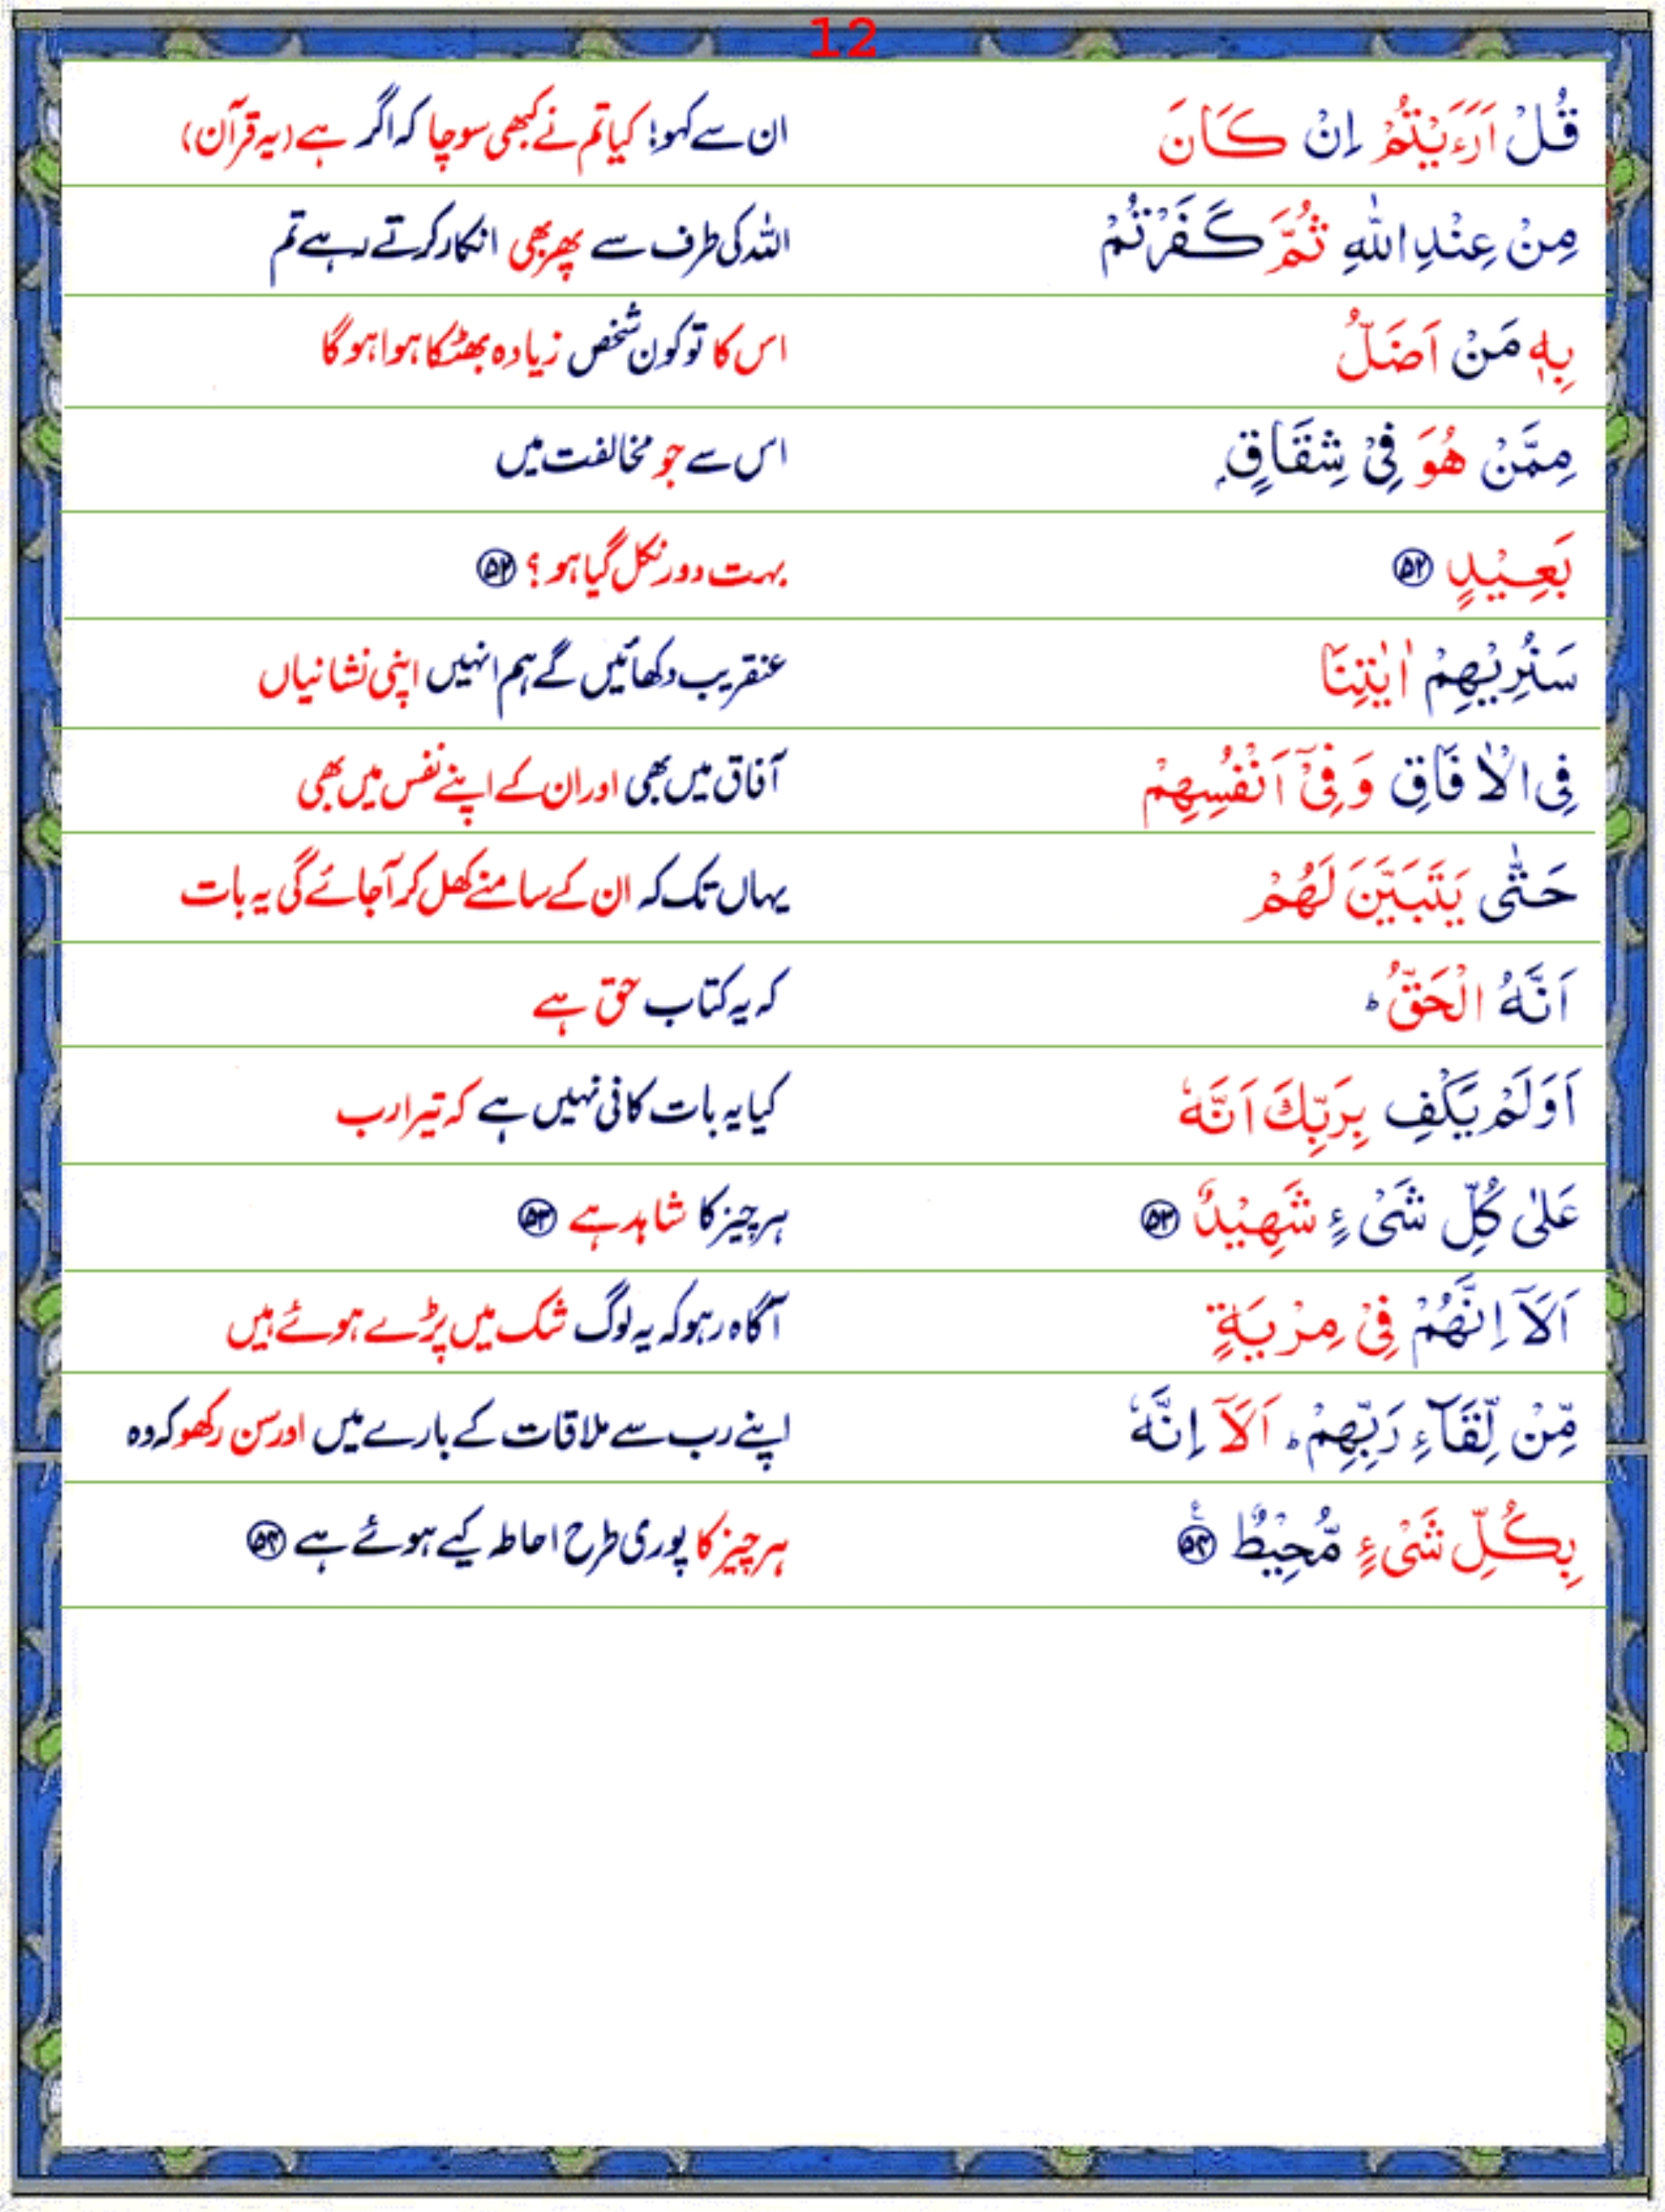 12
قُلْ اَرَءَيْتُمْ اِنْ كَانَ ان سے کہو! کیا تم نے کبھی سوچا کہ اگر ہے (یہ قرآن)
مِنْ عِنْدِ اللّٰهِ ثُمَّ كَفَرْتُمْ اللہ کی طرف سے پھر بھی انکار کرتے رہے تم
بِهٖ مَنْ اَضَلُّ اس کا تو کون شخص زیادہ بھٹکا ہوا ہو گا
مِمَّنْ هُوَ فِیْ شِقَاقٍۭ اس سے جو مخالفت میں
بَعِیْدٍ ۵۲ بہت دور نکل گیا ہو ؟ ۵۲
سَنُرِیْهِمْ اٰیٰتِنَا عنقریب دکھائیں گے ہم انہیں اپنی نشانیاں
فِی الْاٰفَاقِ وَفِیْٓ اَنْفُسِهِمْ آفاق میں بھی اور ان کے اپنے نفس میں بھی
حَتّٰی یَتَبَیَّنَ لَهُمْ یہاں تک کہ ان کے سامنے کھل کر آجائے گی یہ بات
اَنَّهُ الْحَقُّ ؕ کہ یہ کتاب حق ہے
اَوَلَمْ یَكْفِ بِرَبِّكَ اَنَّهٗ کیا یہ بات کافی نہیں ہے کہ تیرا رب
عَلٰی كُلِّ شَیْءٍ شَهِیْدٌ ۵۳ ہر چیز کا شاہد ہے ۵۳
اَلَاۤ اِنَّهُمْ فِیْ مِرْیَةٍ آگاہ رہو کہ یہ لوگ شک میں پڑے ہوئے ہیں
مِّنْ لِّقَآءِ رَبِّهِمْ ؕ اَلَاۤ اِنَّهٗ اپنے رب سے ملاقات کے بارے میں اور سن رکھو کہ وہ
بِكُلِّ شَیْءٍ مُّحِیْطٌ ۵۴ ہر چیز کا پوری طرح احاطہ کیے ہوئے ہے ۵۴